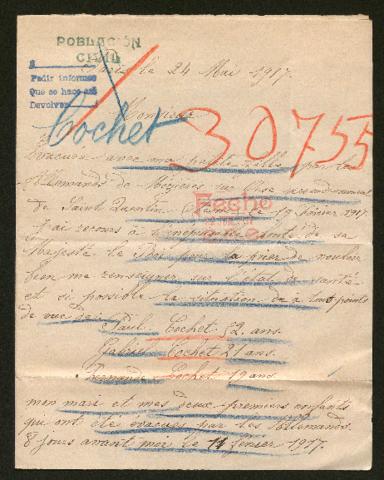 POBLACIÓN
CIVIL
Paris le 24 Mai 1917.
Pedir informes
Que se hace así
Devolver
Monsieur
Cochet
30755
Evacuée avec ma petite fille par les
Allemands de Mézières sur Oise
de Saint Quentin Aisne le 19 février 1917
Fecho
J'ai recours à bonté de sa
Majesté le Roi pour la prier de vouloir
bien me renseigner sur l'état de santé
et si possible la situation de à tout points
de vue de:
Paul Cochet 52 ans.
Gabriel Cochet 21 ans.
Cochet 19 ans.
mon mari et mes deux premiers enfants
qui ont été évacués par les Allemands.
8 jours avant moi le 11 février 1917.